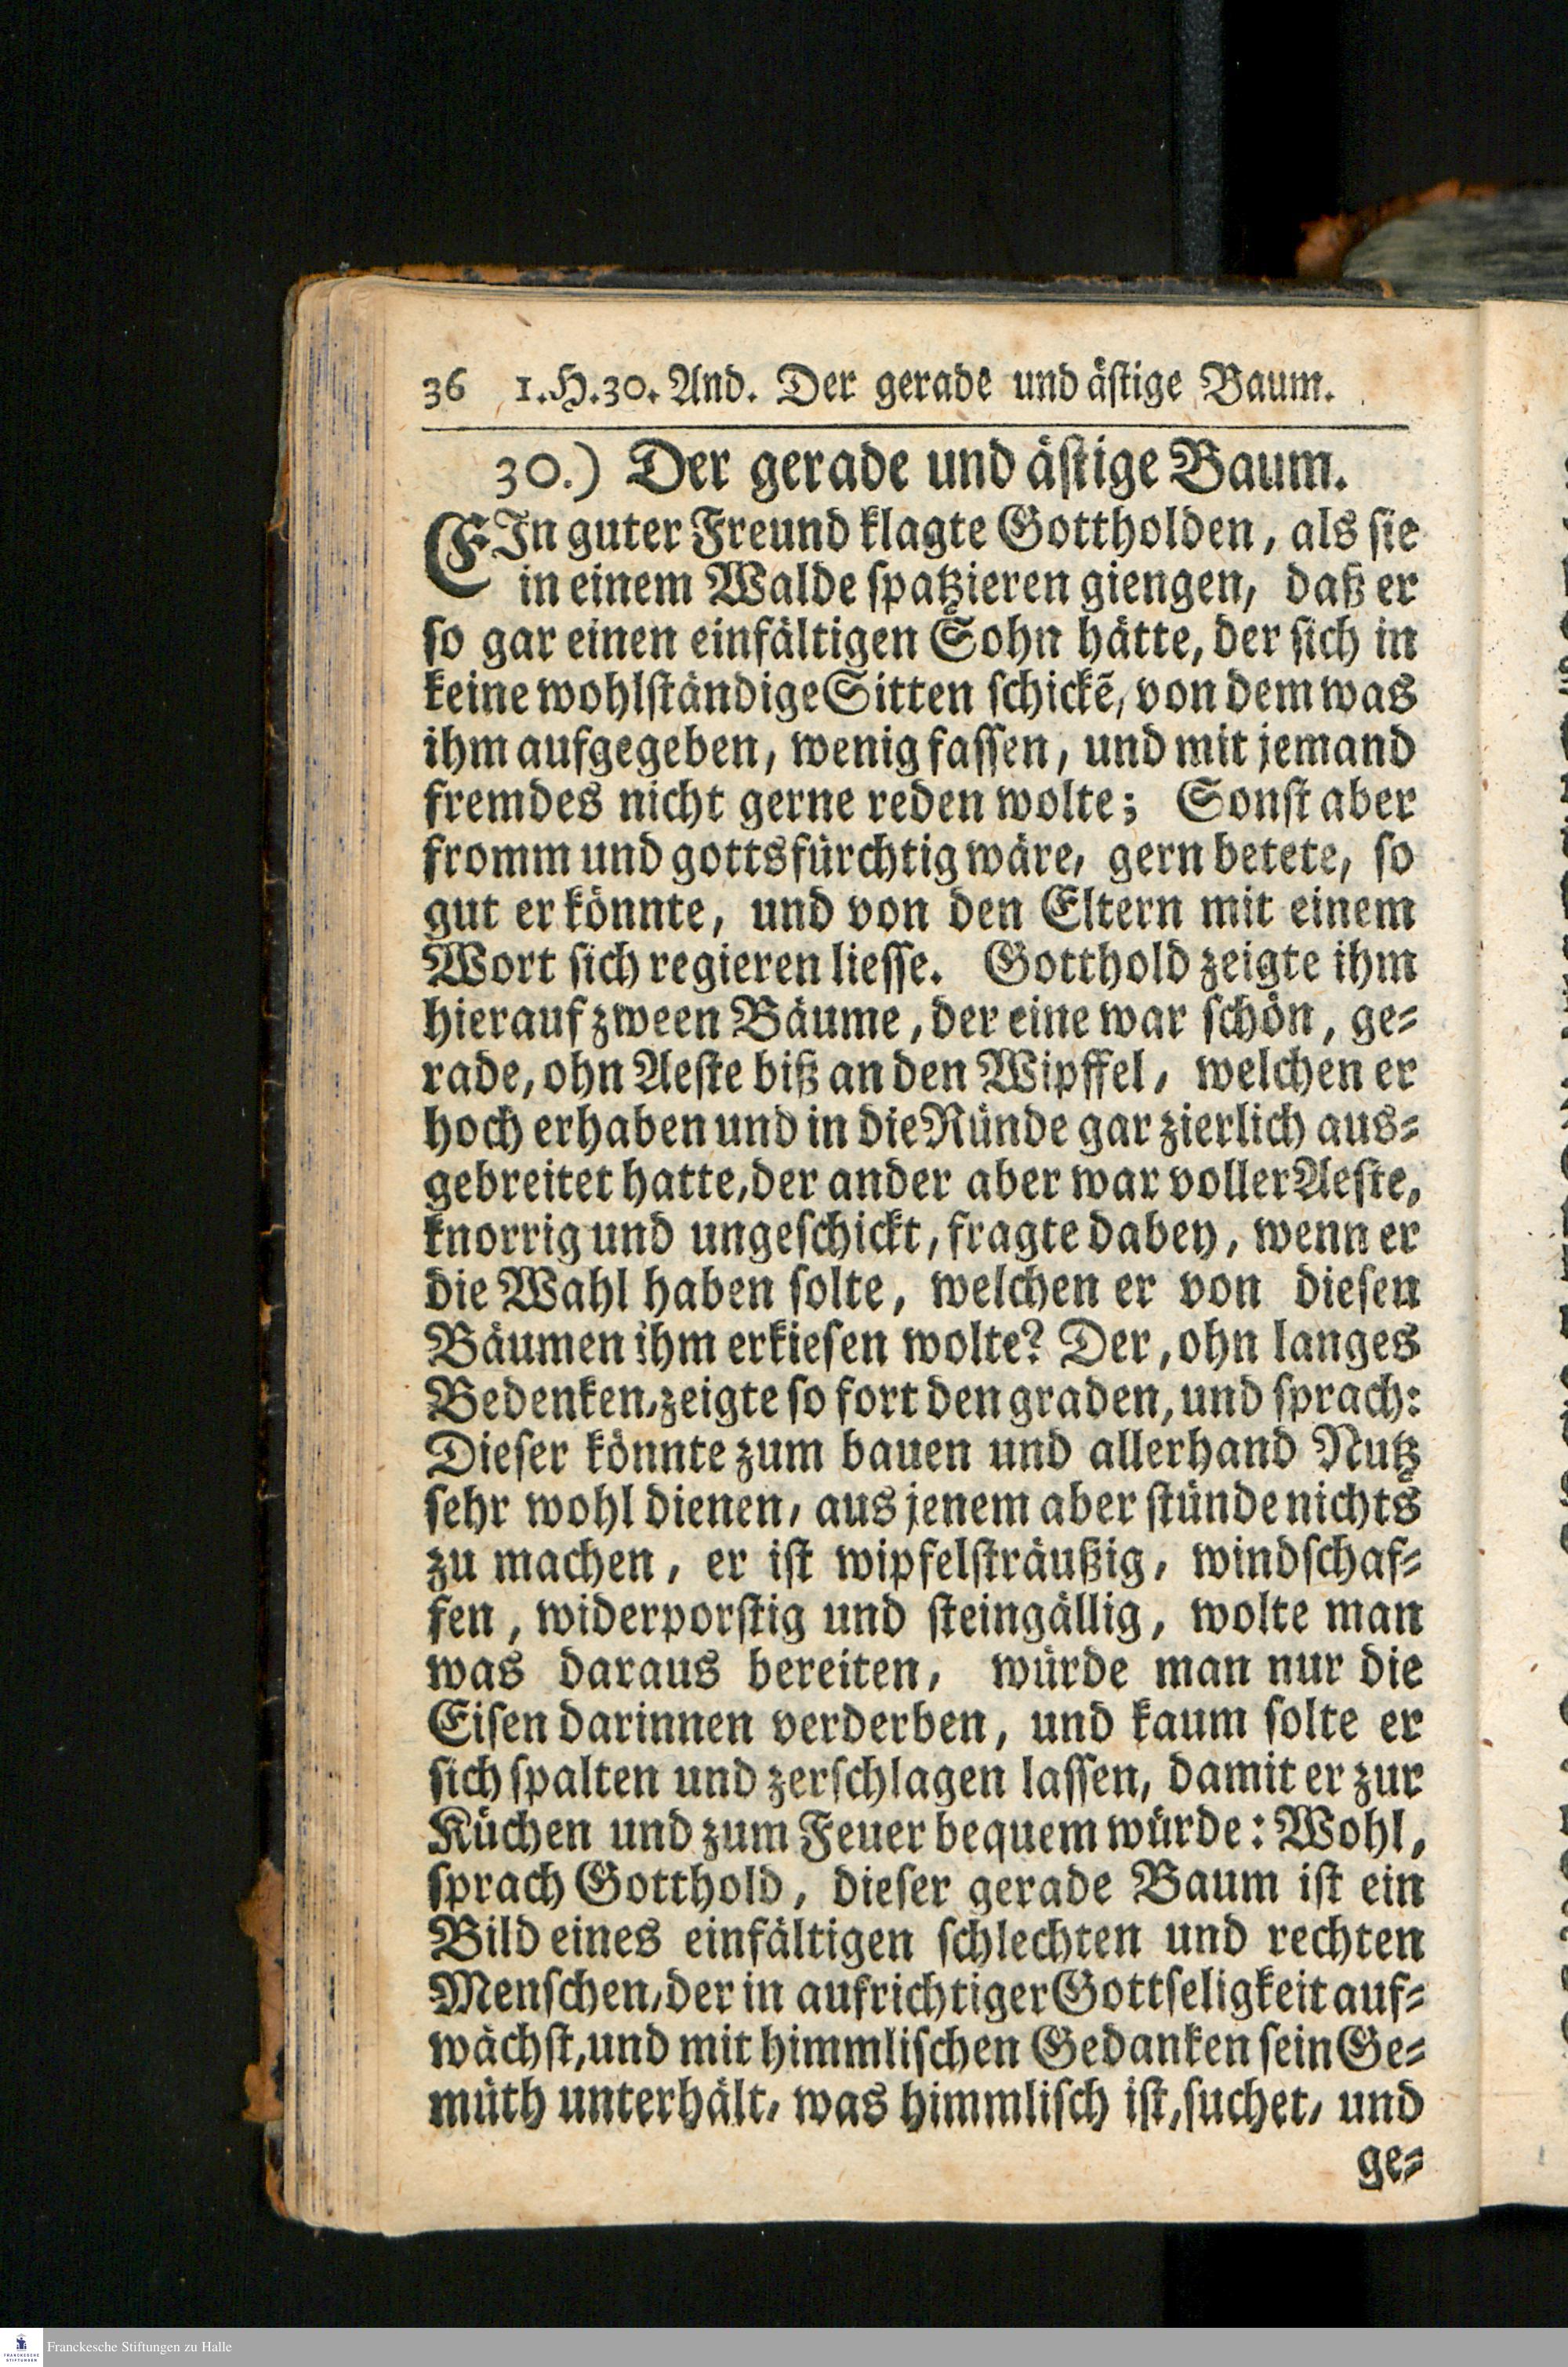 36 1.H.30. And. Der gerade und ästige Baum.
30.) Der gerade und ästige Baum.
EIn guter Freund klagte Gottholden, als sie
in einem Walde spatzieren giengen, daß er
so gar einen einfältigen Sohn hätte, der sich in
keine wohlständige Sitten schickẽ, von dem was
ihm aufgegeben, wenig fassen, und mit jemand
fremdes nicht gerne reden wolte; Sonst aber
fromm und gottsfürchtig wäre, gern betete, so
gut er könnte, und von den Eltern mit einem
Wort sich regieren liesse. Gotthold zeigte ihm
hierauf zween Bäume, der eine war schön, ge-
rade, ohn Aeste biß an den Wipffel, welchen er
hoch erhaben und in die Ründe gar zierlich aus-
gebreitet hatte, der ander aber war voller Aeste,
knorrig und ungeschickt, fragte dabey, wenn er
die Wahl haben solte, welchen er von diesen
Bäumen ihm erkiesen wolte? Der, ohn langes
Bedenken, zeigte so fort den graden, und sprach:
Dieser könnte zum bauen und allerhand Nutz
sehr wohl dienen, aus jenem aber stünde nichts
zu machen, er ist wipfelsträußig, windschaf-
fen, widerporstig und steingällig, wolte man
was daraus bereiten, würde man nur die
Eisen darinnen verderben, und kaum solte er
sich spalten und zerschlagen lassen, damit er zur
Küchen und zum Feuer bequem würde: Wohl,
sprach Gotthold, dieser gerade Baum ist ein
Bild eines einfältigen schlechten und rechten
Menschen, der in aufrichtiger Gottseligkeit auf-
wächst, und mit himmlischen Gedanken sein Ge-
müth unterhält, was himmlisch ist, suchet, und
ge-
Franckesche Stiftungen zu Halle
FRANCKESCHE
STIFTUNGEN